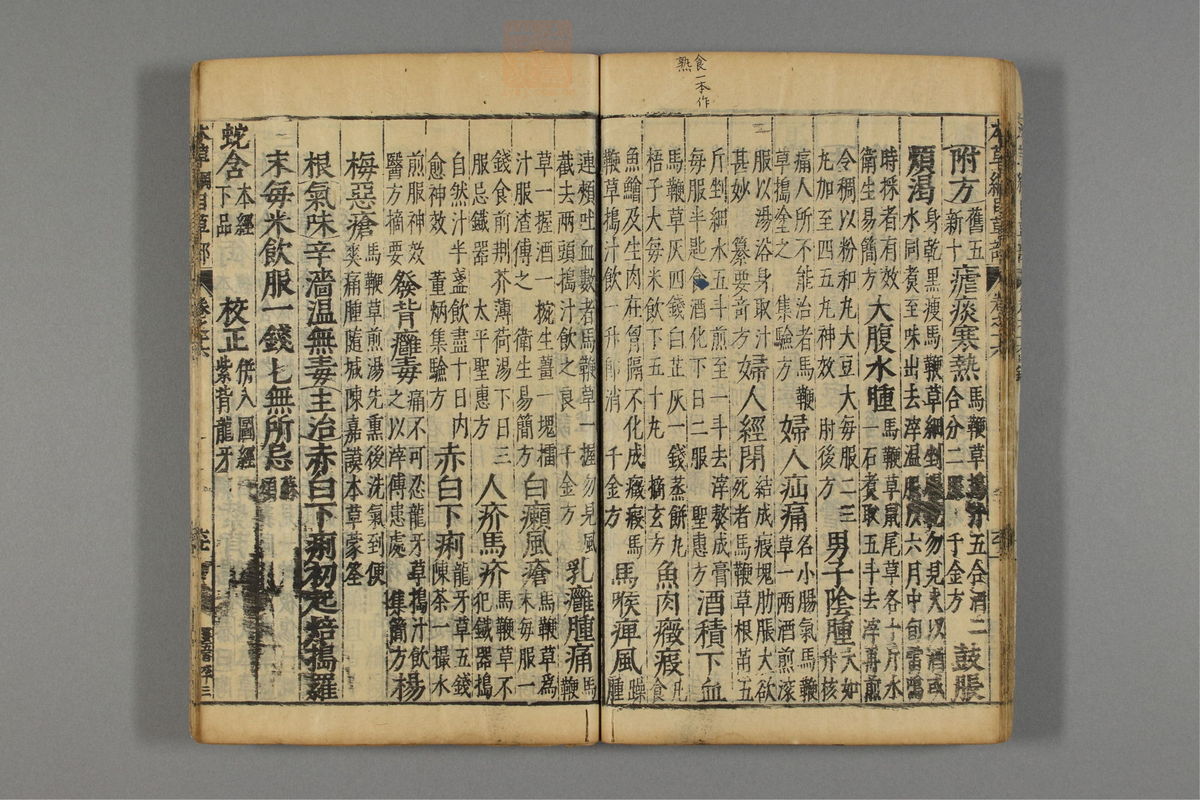 食一本作
熟
附方 舊五新十 瘧痰寒熱 馬鞭草搗汁五合酒二合分二服 千金方 鼓脹
煩渴 身乾黑瘦馬鞭草細剉勿見火以酒或水同煮至味出去滓溫服以六月中旬雷鳴
時採者有效衛生易簡方 大腹水腫 馬鞭草鼠尾草各十斤水一石煮取五斗去滓再煎
令稠以粉和丸大豆大每服二三丸加至四五丸神效 肘後方 男子陰腫 大如升核
痛人所不能治者馬鞭草搗塗之 集驗方 婦人疝痛 名小腸氣馬鞭草一兩酒煎滾
服以湯浴身取汗甚妙 纂要奇方 婦人經閉 結成瘕塊肋脹大欲死者馬鞭草根苗五
斤剉細水五斗煎至一斗去滓熬成膏每服半匙食酒化下日二服 聖惠方 酒積下血
馬鞭草灰四錢白芷灰一錢蒸餅丸梧子大每米飲下五十丸 摘玄方 魚肉癥瘕 凡食
魚鱠及生肉在胷膈不化成癥瘕馬鞭草搗汁飲一升即消 千金方 馬喉痺風 躁腫
連頰吐血數者馬鞭草一握勿見風截去兩頭搗汁飲之良 千金方 乳癰腫痛 馬鞭
草一握酒一椀生薑一塊擂汁服渣傅之 衛生易簡方 白癩風瘡 馬鞭草爲末每服一
錢食前荆芥薄荷湯下日三服忌鐵器 太平聖惠方 人疥馬疥 馬鞭草不犯鐵器搗
自然汁半盞飲盡十日內愈神效 董炳集驗方 赤白下痢 龍牙草五錢陳茶一撮水
煎服神效醫方摘要 發背癰毒 痛不可忍龍牙草搗汁飲之以滓傅患處 集簡方 楊
梅惡瘡 馬鞭草煎湯先熏後洗氣到便爽痛腫隨減陳嘉謨本草蒙筌
根氣味辛濇溫無毒主治赤白下痢初起焙搗羅
末每米飲服一錢匕無所忌 蘇頌
蛇含 本經下品 校正 併入圖經紫背龍牙
本草綱目草部